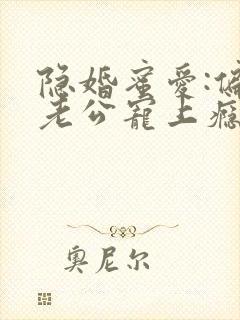 隐婚蜜爱:偏
老公宠上瘾
奥尼尔